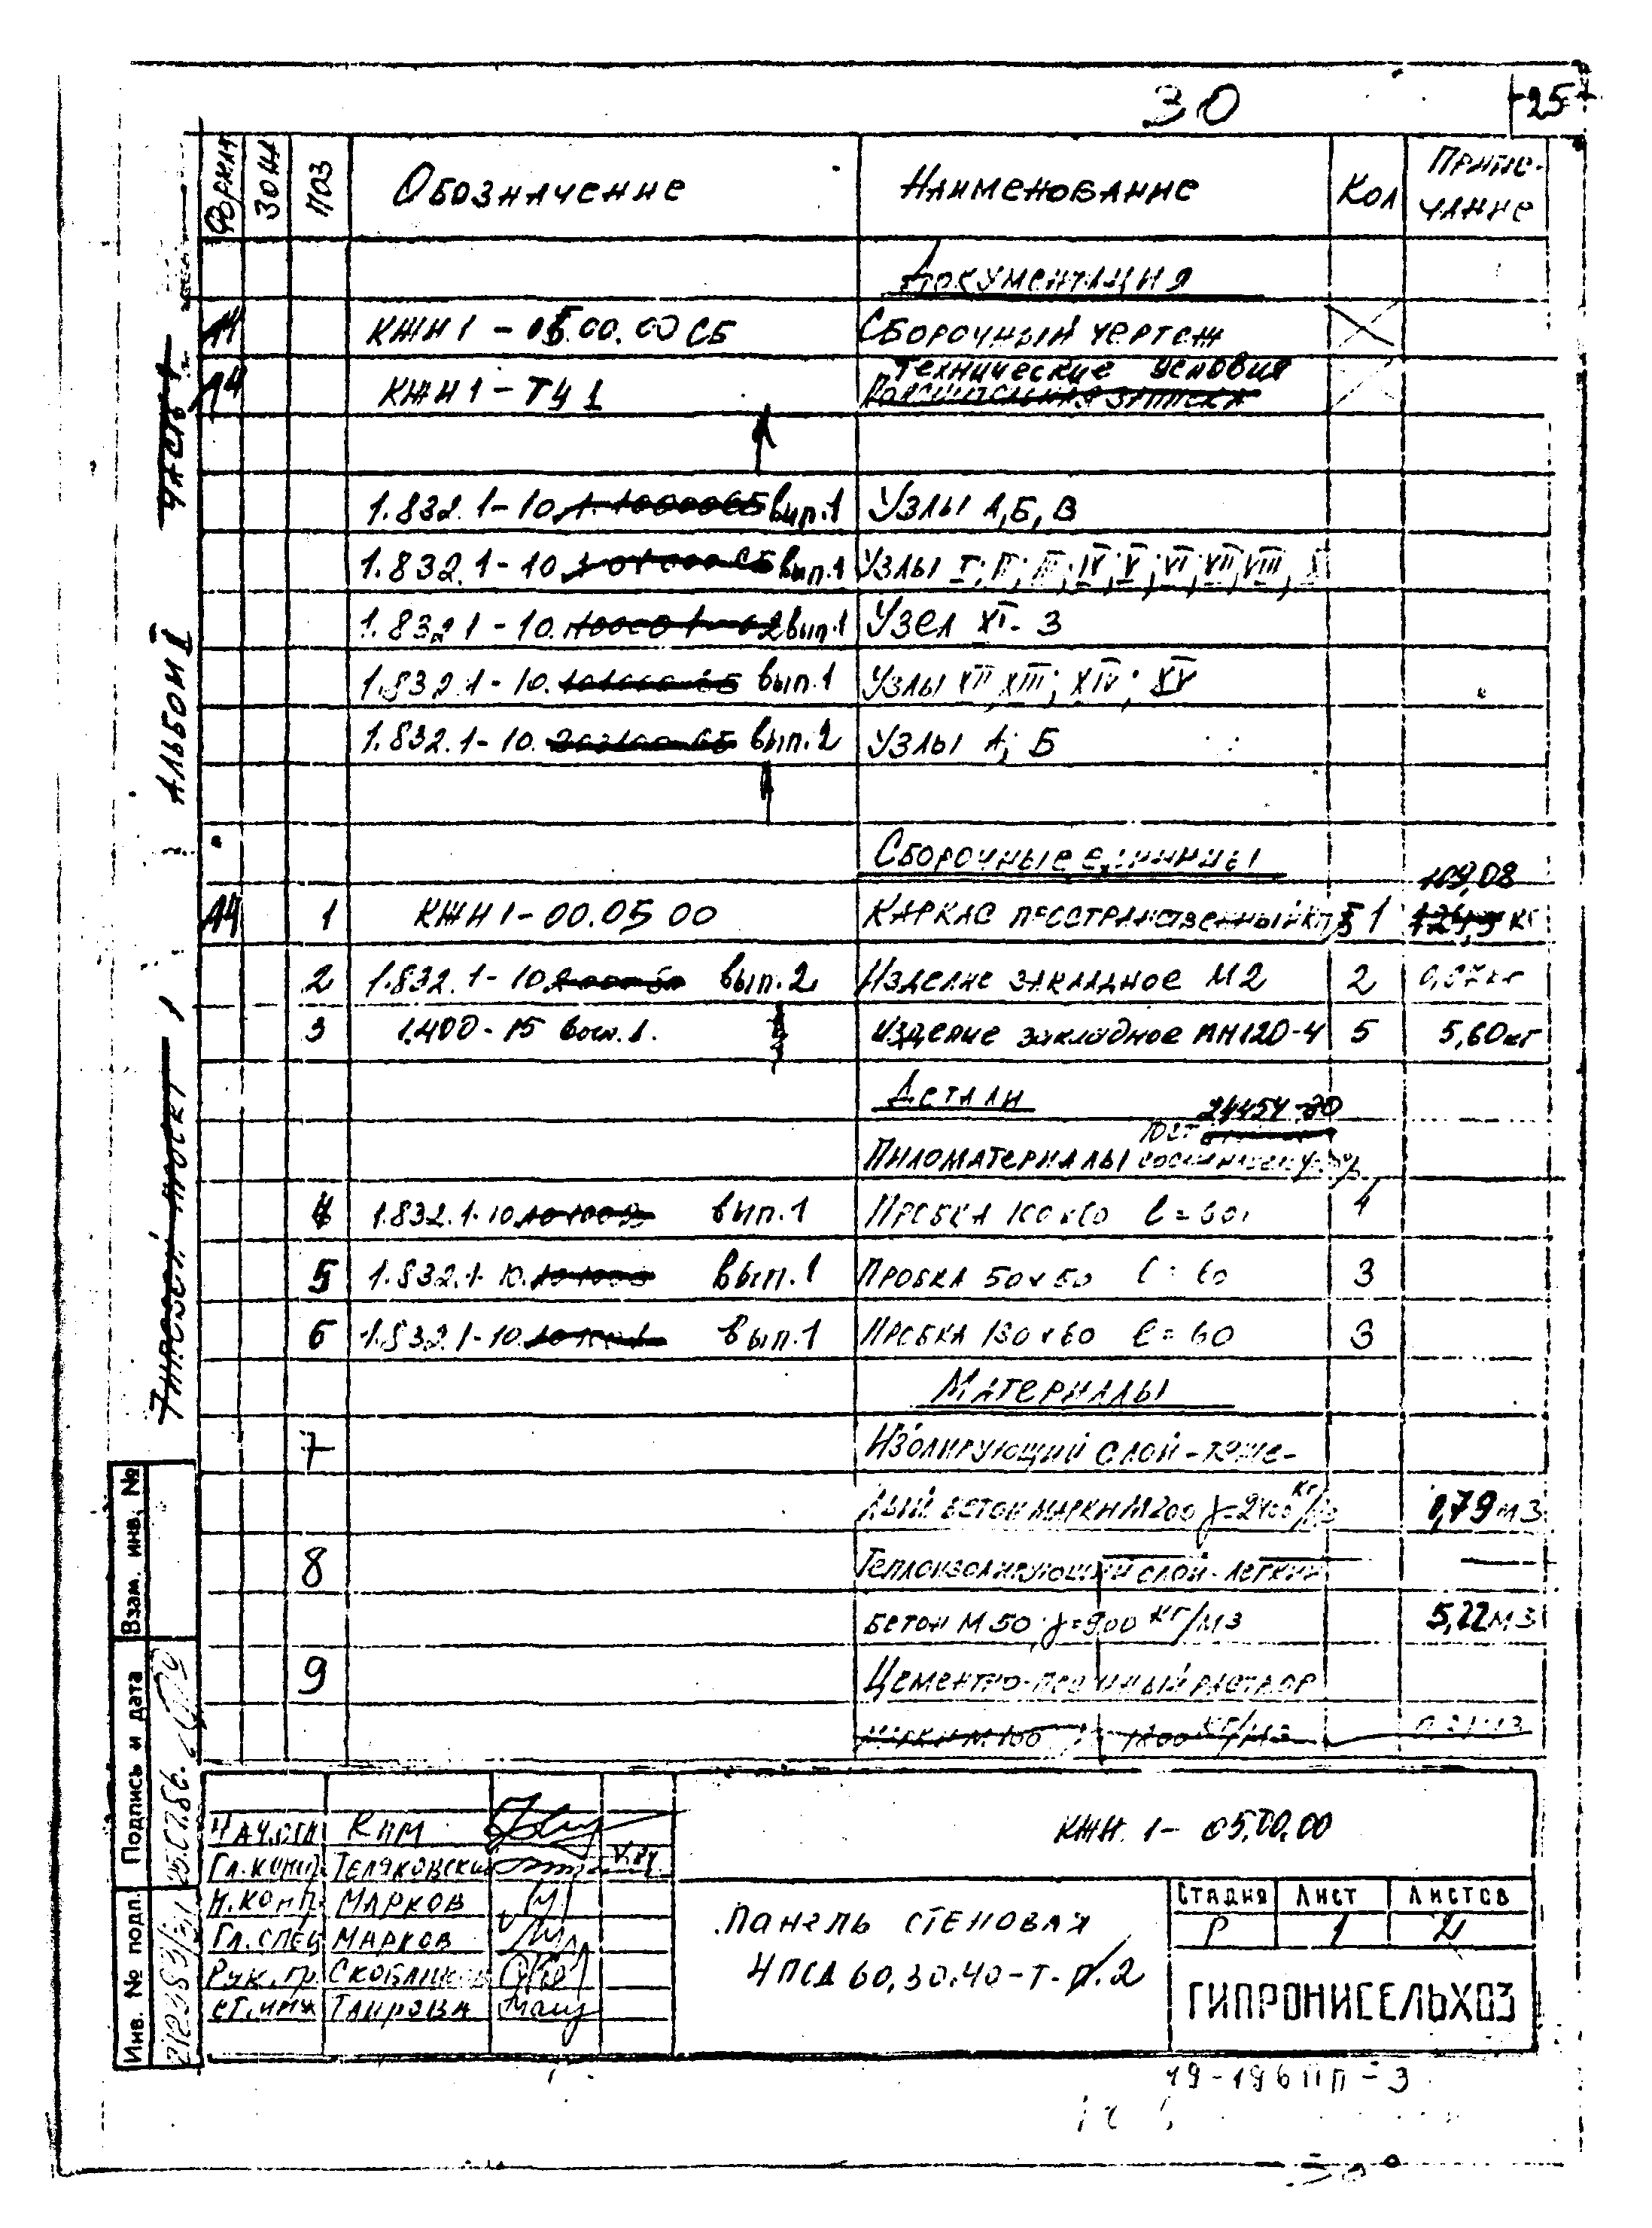 30
25
Формат Зона Поз Обозначение Наименование Кол Приме-
чание
Документация
А4 КЖН1-05.00.00 СБ Сборочный чертеж
Технические условия
А4 КЖН1-ТУ1 Пояснительная записка
1.832.1-10. вып.1 Узлы А, Б, В
1.832.1-10. вып.1 Узлы I; II; III; IV; V; VI; VII; VIII;
1.832.1-10. вып.1 Узел XI-3
1.832.1-10. вып.1 Узлы XII, XIII; XIV; XV
1.832.1-10. вып.2 Узлы А; Б
Сборочные единицы
109,08
А4 1 КЖН1-00.05 00 Каркас пространственный 1 кг
2 1.832.1-10. вып.2 Изделие закладное М2 2 0,87кг
3 1.400-15 вып.1. Изделие закладное МН120-4 5 5,60кг
Детали
24454-80
Пиломатериалы ГОСТ
4 1.832.1-10. вып.1 Пробка 4
5 1.832.1-10. вып.1 Пробка 50х50 ℓ=60 3
6 1.832.1-10. вып.1 Пробка 130х60 ℓ=60 3
Материалы
7 Изолирующий слой-тяже-
лый бетон марки М200 γ=2400 кг/м3 0,79 м3
8 Теплоизолирующий слой-легкий
бетон М50, γ=900 кг/м3 5,22 м3
9 Цементно-песчаный раствор
марки М100 1800 кг/м3
Типовой проект
Альбом I
Часть 1
Взам. инв. №
Подпись и дата
Инв. № подл.
КЖН 1-05.00.00
Нач.отд Ким
Гл.констр. Теляковский V.84
Н.контр. Марков
Гл.спец Марков
Рук.гр. Скобликов
Ст.инж Таирова
Панель стеновая
4ПСД 60.30.40-Т-П.2
Стадия Лист Листов
Р 1 2
ГИПРОНИСЕЛЬХОЗ
19-196ПП-3